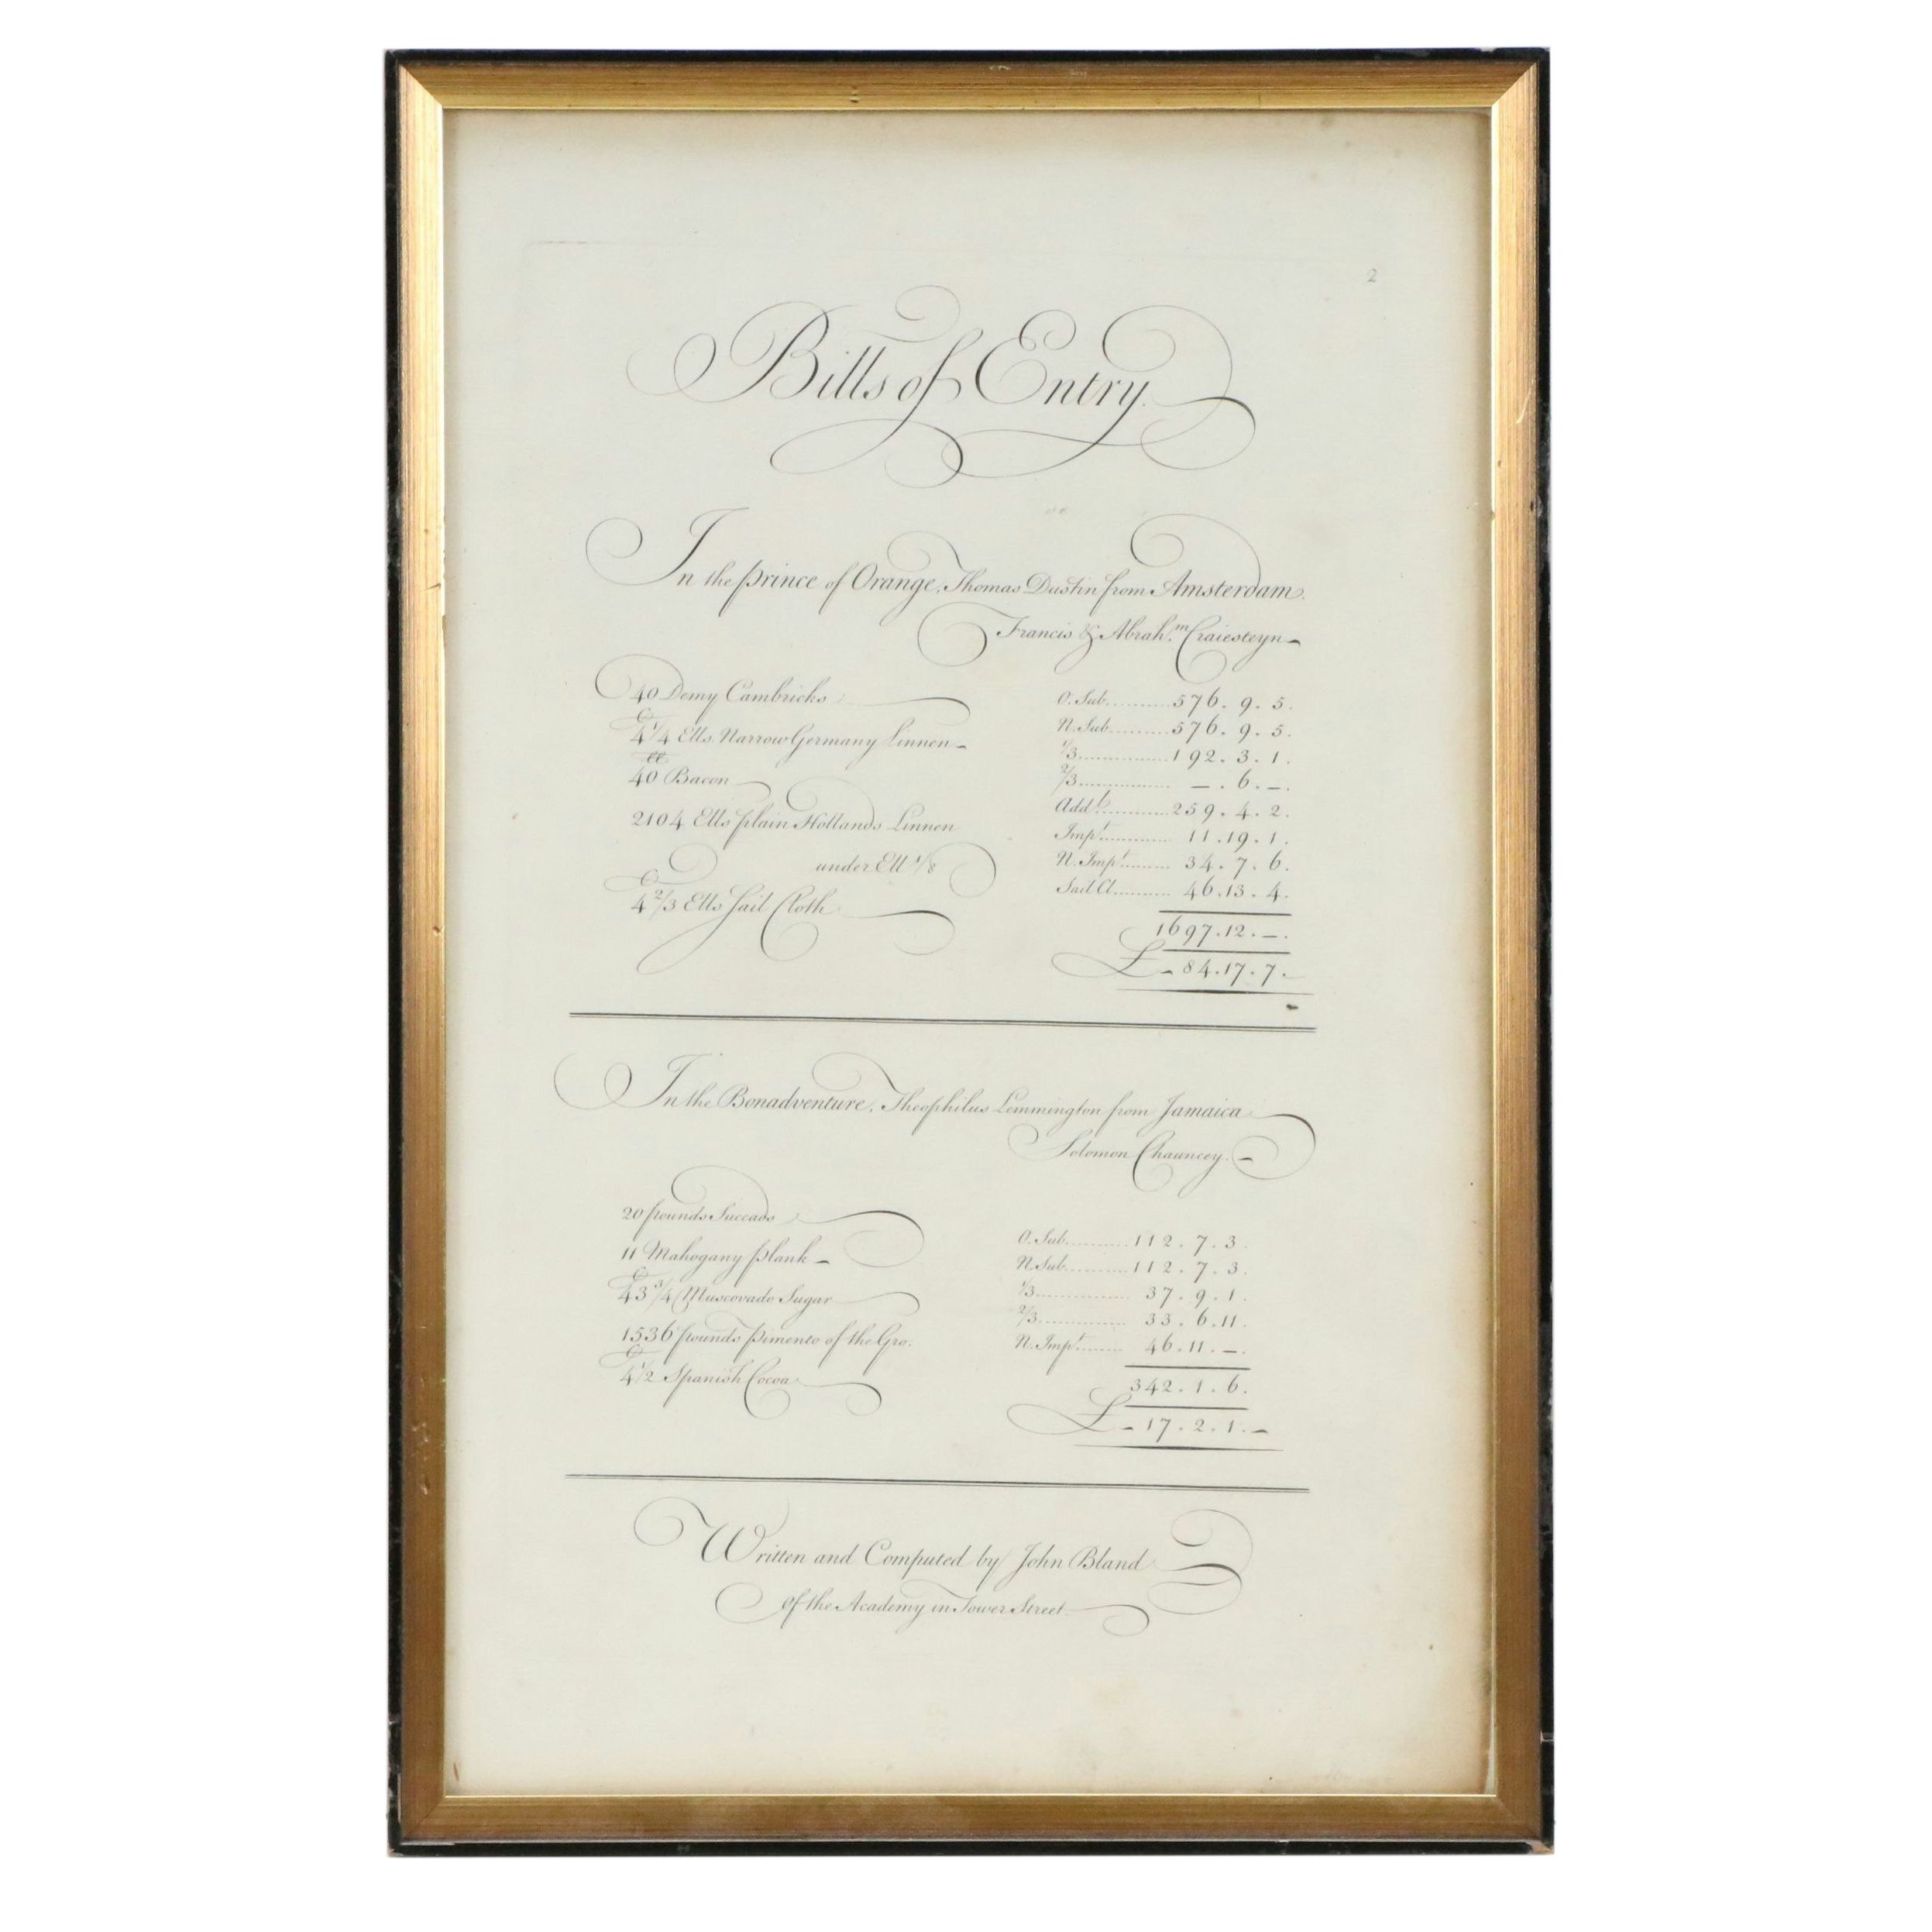 2
Bills of Entry.
In the Prince of Orange, Thomas Dustin from Amsterdam.
Francis & Abrah.m Craiesteyn
40 Demy Cambricks
C
4 1/4 Ells Narrow Germany Linnen
40 Bacon
2104 Ells plain Hollands Linnen
under Ell 1/8
C
4 2/3 Ells Sail Cloth
O. Sub..........576. 9. 5.
N. Sub..........576. 9. 5.
1/3...............192. 3. 1.
2/3............... –. 6. –.
Add.l..........259. 4. 2.
Imp.t.......... 11. 19. 1.
N. Imp.t......... 34. 7. 6.
Sail Cl.......... 46. 13. 4.
1697. 12. –.
£ 84. 17. 7.
In the Bonadventure, Theophilus Lemmington from Jamaica
Solomon Chauncey.
20 pounds Succads
11 Mahogany Plank
C
43 3/4 Muscovado Sugar
1536 pounds Pimento of the Gro.
C
4 1/2 Spanish Cocoa
O. Sub..........112. 7. 3.
N. Sub..........112. 7. 3.
1/3............... 37. 9. 1.
2/3............... 33. 6. 11.
N. Imp.t........ 46. 11. –.
342. 1. 6.
£ 17. 2. 1.
Written and Computed by John Bland
Of the Academy in Tower Street